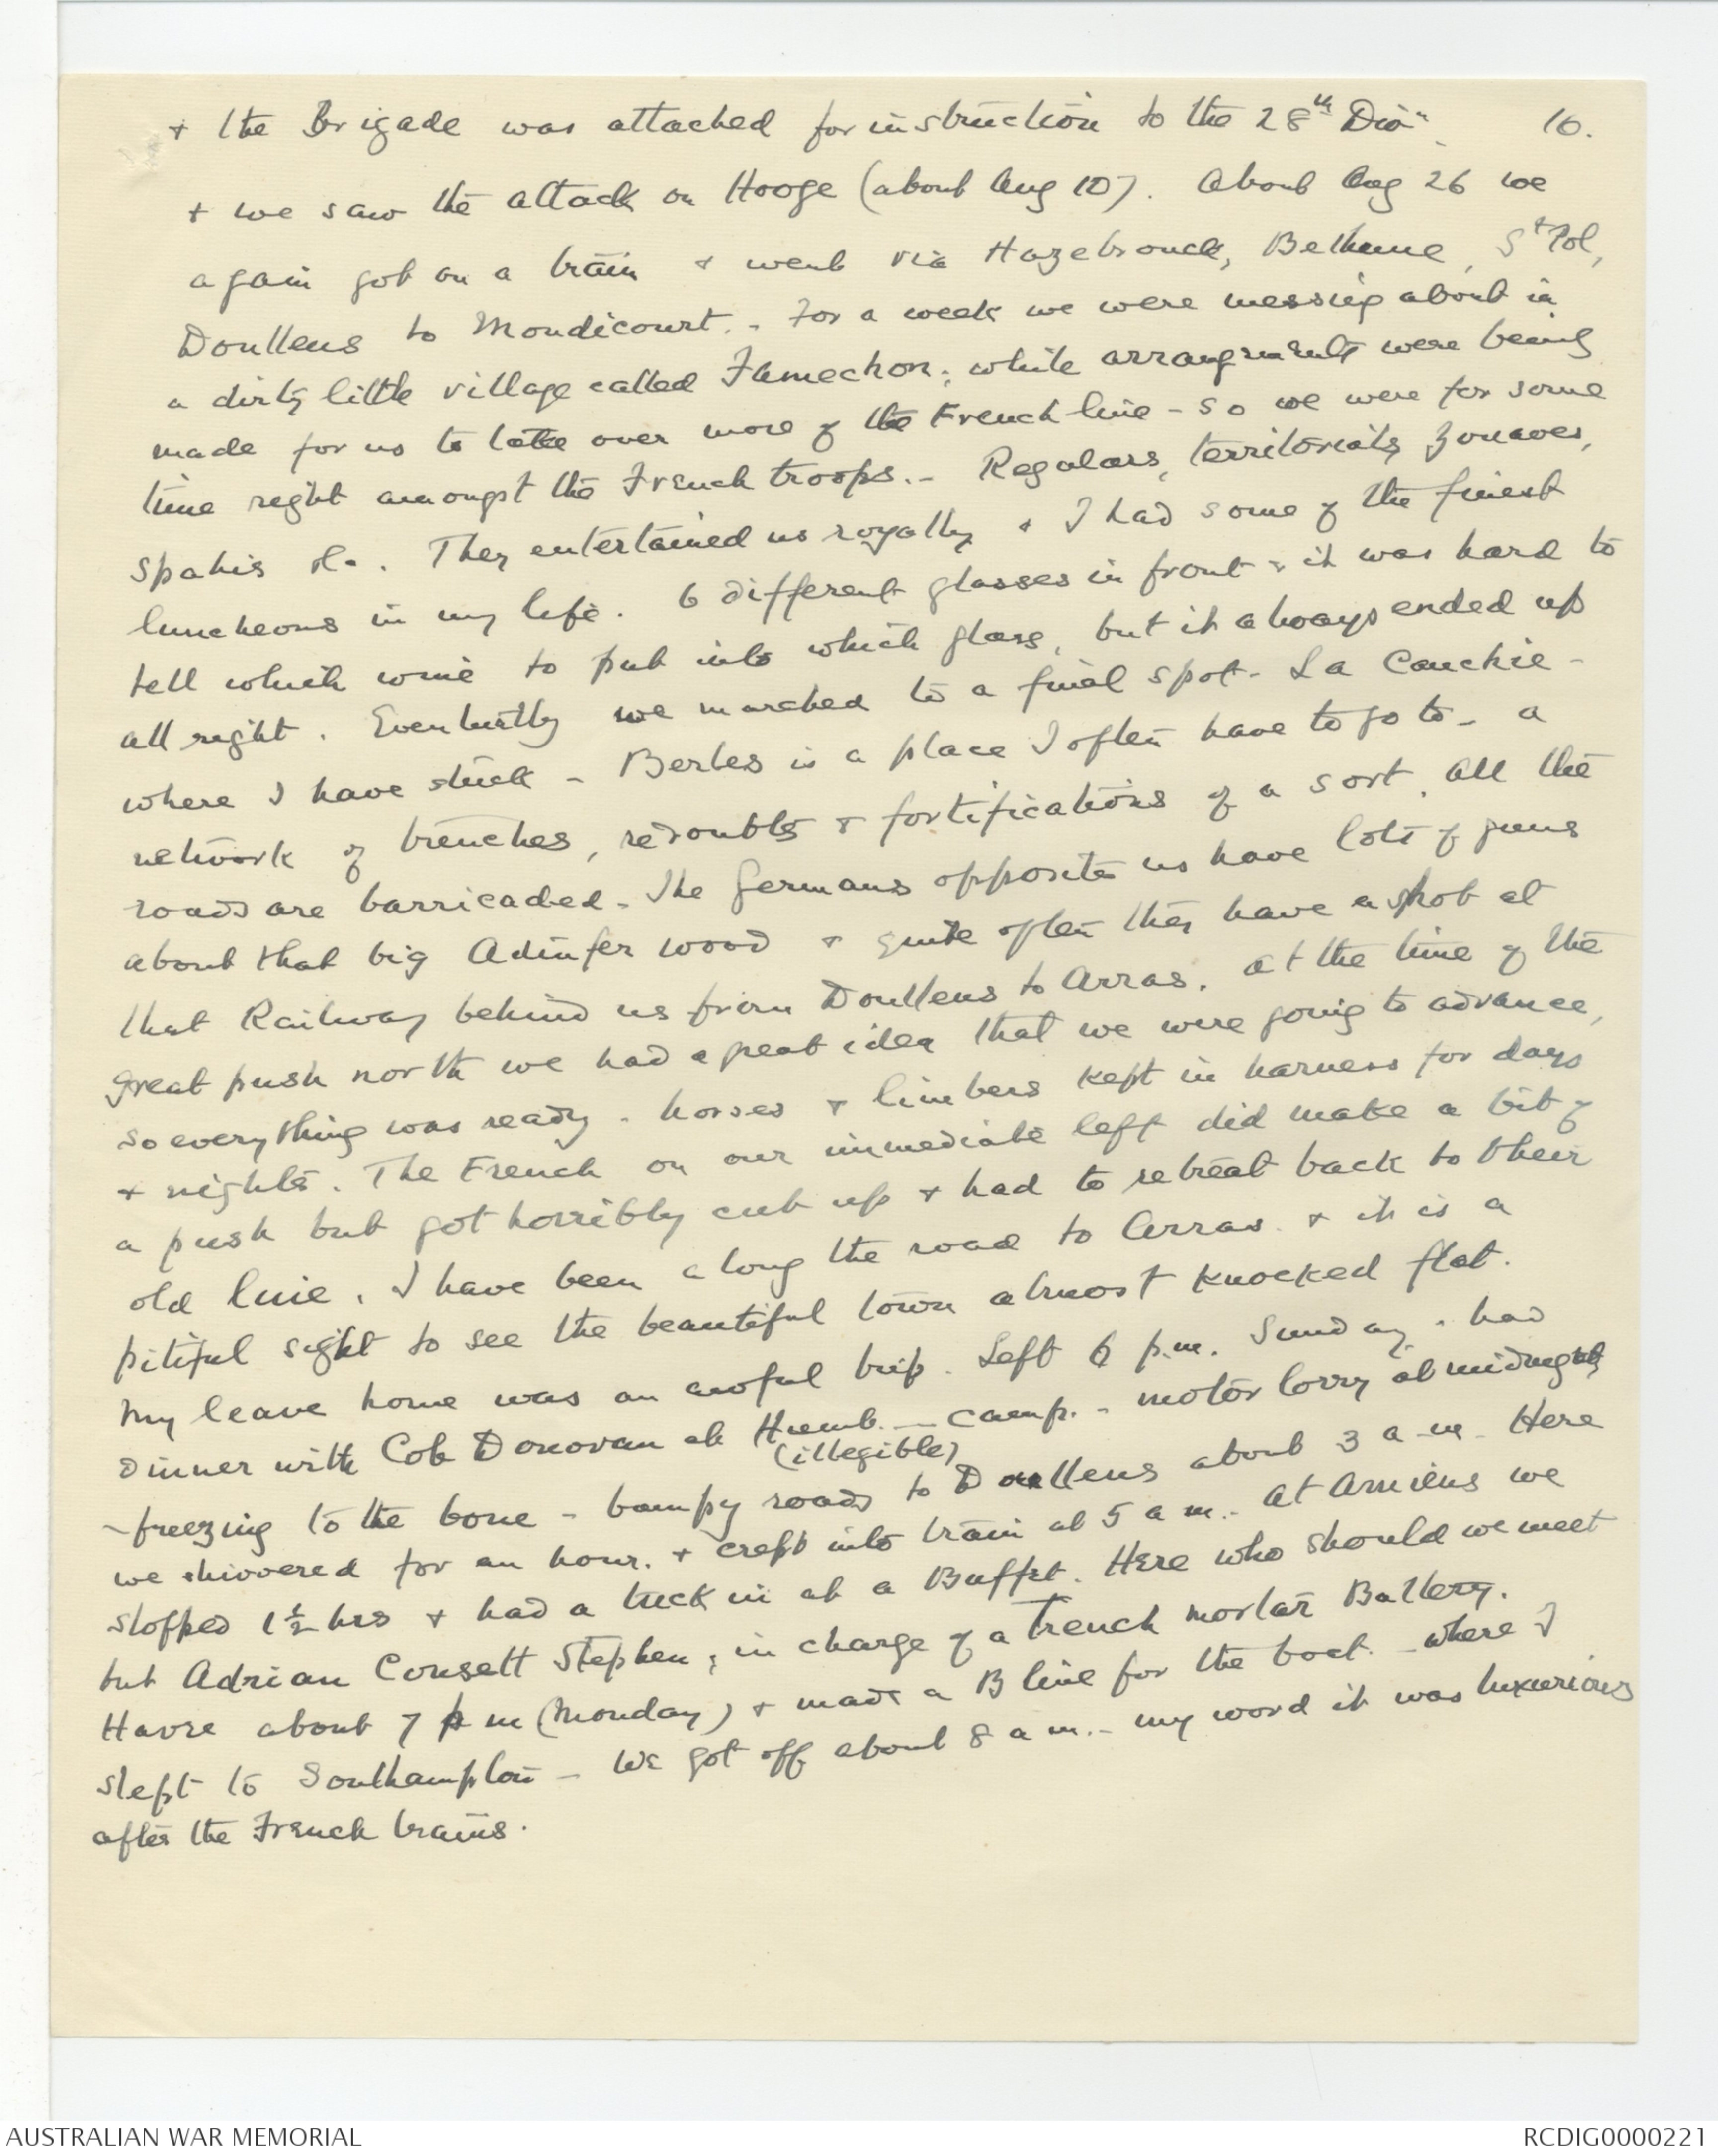 + the Brigade was attached for instruction to the 28th Divn. 16.
+ we saw the attack on Hooge (about Aug 10). About Aug 26 we
again got on a train + went via Hazebrouck, Bethune, St Pol,
Doullens to Mondicourt. - For a week we were messing about in
a dirty little village called Famechon; while arrangements were being
made for us to take over more of the French line - so we were for some
time right amongst the French troops. - Regulars, territorials, Zouaves,
Spahis &c. They entertained us royally + I had some of the finest
luncheons in my life. 6 different glasses in front + it was hard to
tell which wine to put into which glass, but it always ended up
all right. Eventually we marched to a final spot - La Cauchie -
where I have stuck - Berles is a place I often have to go to - a
network of trenches, redoubts + fortifications of a sort. All the
roads are barricaded - The Germans opposite us have lots of guns
about that big Adinfer wood + quite often they have a shot at
that Railway behind us from Doullens to Arras. At the time of the
great push north we had a great idea that we were going to advance,
so everything was ready - horses + limbers kept in harness for days
+ nights. The French on our immediate left did make a bit of
a push but got horribly cut up + had to retreat back to their
old line. I have been along the road to Arras. + it is a
pitiful sight to see the beautiful town almost knocked flat.
My leave home was an awful trip. Left 6 p.m. Sunday. had
dinner with Col Donovan at Humb. — camp. - motor lorry at midnight
(illegible)
- freezing to the bone - bumpy roads to Doullens about 3 a.m. Here
we shivered for an hour. + crept into train at 5 a m. - At Amiens we
stopped 1½ hrs + had a tuck in at a Buffet. Here who should we meet
but Adrian Consett Stephen, in charge of a Trench mortar Battery.
Havre about 7 p m (Monday) + made a B line for the boat. - where I
slept to Southampton - We got off about 8 a m. - my word it was luxurious
after the French trains.
AUSTRALIAN WAR MEMORIAL
RCDIG0000221